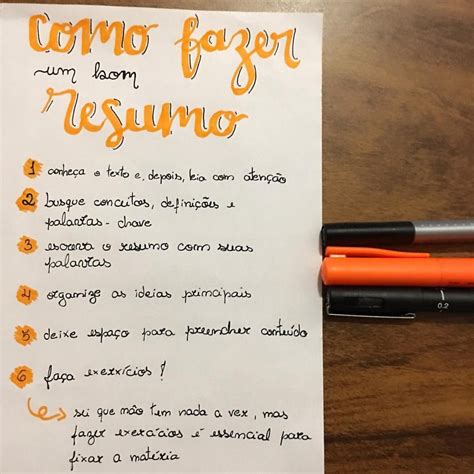 como fazer
um bom
resumo
1 conheça o texto e, depois, leia com atenção
2 busque conceitos, definições e
palavras-chave
3 escreva o resumo com suas
palavras
4 organize as ideias principais
5 deixe espaço para preencher conteúdo
6 faça exercícios!
sei que não tem nada a ver, mas
fazer exercícios é essencial para
fixar a matéria
0.2